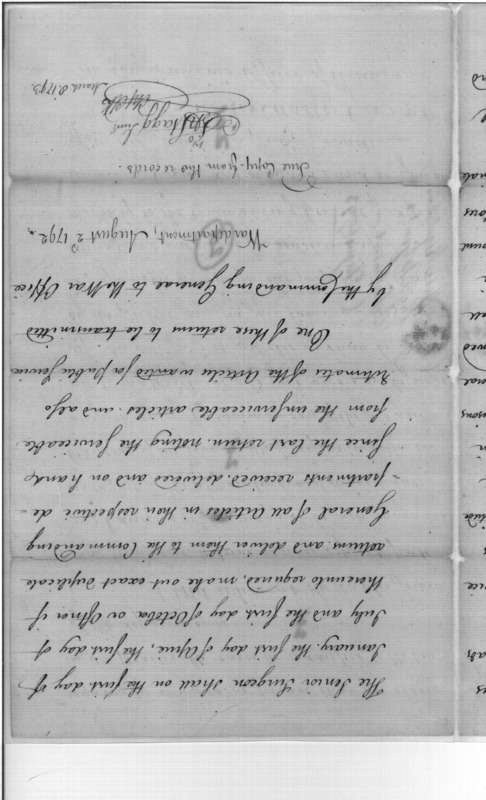 The Senior Surgeon shall on the first day of
January, the first day of April, the first day of
July and the first day of October or oftner if
thereunto required make out exact duplicate
returns and deliver them to the Commanding
General of all Articles in their respective de-
-partments received, delivered and on hand
since the last return, noting the serviceable
from the unserviceable articles and also
estimates of the Articles wanted for public service
One of these returns to be transmitted
by the Commanding General to the War Office
War department, August 2d 1792.
True Copy from the records.
Jno Stagg Junr
March 8. 1793.